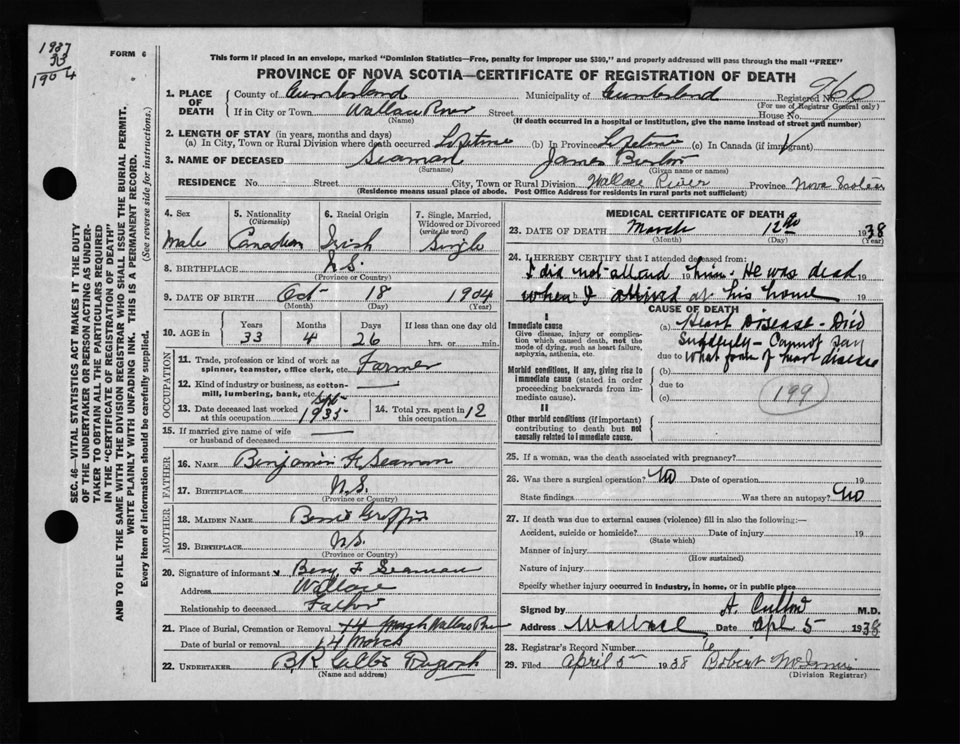 1937
33
1904
FORM 6
This form if placed in an envelope, marked "Dominion Statistics—Free, penalty for improper use $300," and properly addressed will pass through the mail "FREE"
PROVINCE OF NOVA SCOTIA—CERTIFICATE OF REGISTRATION OF DEATH
960
1. PLACE OF DEATH
County of Cumberland Municipality of Cumberland Registered No.
(For use of Registrar General only)
If in City or Town Wallace River Street House No.
(Name) (If death occurred in a hospital or institution, give the name instead of street and number)
2. LENGTH OF STAY (in years, months and days)
(a) In City, Town or Rural Division where death occurred Lifetime (b) In Province Lifetime (c) In Canada (if immigrant)
3. NAME OF DECEASED Seaman James
(Surname) (Given name or names)
RESIDENCE No. Street City, Town or Rural Division Wallace River Province Nova Scotia
(Residence means usual place of abode. Post Office Address for residents in rural parts not sufficient)
SEC. 46—VITAL STATISTICS ACT MAKES IT THE DUTY
OF THE UNDERTAKER OR PERSON ACTING AS UNDER-
TAKER TO OBTAIN ALL THE PARTICULARS REQUIRED
IN THE "CERTIFICATE OF REGISTRATION OF DEATH"
AND TO FILE THE SAME WITH THE DIVISION REGISTRAR WHO SHALL ISSUE THE BURIAL PERMIT.
WRITE PLAINLY WITH UNFADING INK. THIS IS A PERMANENT RECORD.
Every item of information should be carefully supplied. (See reverse side for instructions.)
4. Sex 5. Nationality (Citizenship) 6. Racial Origin 7. Single, Married, Widowed or Divorced (write the word)
Male Canadian Irish Single
8. BIRTHPLACE N.S.
(Province or Country)
9. DATE OF BIRTH Oct 18 1904
(Month) (Day) (Year)
10. AGE in Years Months Days If less than one day
33 4 26 hrs. or min.
OCCUPATION
11. Trade, profession or kind of work as
spinner, teamster, office clerk, etc. Farmer
12. Kind of industry or business, as cotton-
mill, lumbering, bank, etc.
13. Date deceased last worked at this occupation Sept 1935 14. Total yrs. spent in this occupation 12
15. If married give name of wife
or husband of deceased
FATHER
16. NAME Benjamin F Seaman
17. BIRTHPLACE N.S.
(Province or Country)
MOTHER
18. MAIDEN NAME Griffin
19. BIRTHPLACE N.S.
(Province or Country)
20. Signature of informant Benj F Seaman
Address Wallace
Relationship to deceased Father
21. Place of Burial, Cremation or Removal Wallace
Date of burial or removal 14 March
22. UNDERTAKER
(Name and address)
MEDICAL CERTIFICATE OF DEATH
23. DATE OF DEATH March 12th 1938
(Month) (Day) (Year)
24. I HEREBY CERTIFY that I attended deceased from:
I did not attend 19 him. He was dead 19
when I arrived at his home 19
CAUSE OF DEATH
I
Immediate cause
Give disease, injury or complica-
tion which caused death, not the
mode of dying, such as heart failure,
asphyxia, asthenia, etc.
(a) Heart Disease - Died
Suddenly - Cannot say
due to What form of heart disease
Morbid conditions, if any, giving rise to
immediate cause (stated in order
proceeding backwards from im-
mediate cause).
(b)
due to
(c)
199
II
Other morbid conditions (if important)
contributing to death but not
causally related to immediate cause.
25. If a woman, was the death associated with pregnancy?
26. Was there a surgical operation? No Date of operation 19
State findings Was there an autopsy? No
27. If death was due to external causes (violence) fill in also the following:—
Accident, suicide or homicide? Date of injury 19
(State which)
Manner of injury
(How sustained)
Nature of injury
Specify whether injury occurred in industry, in home, or in public place
Signed by A. M.D.
Address Wallace Date Apl 5 1938
28. Registrar's Record Number 6
29. Filed April 5th 1938 Robert
(Division Registrar)